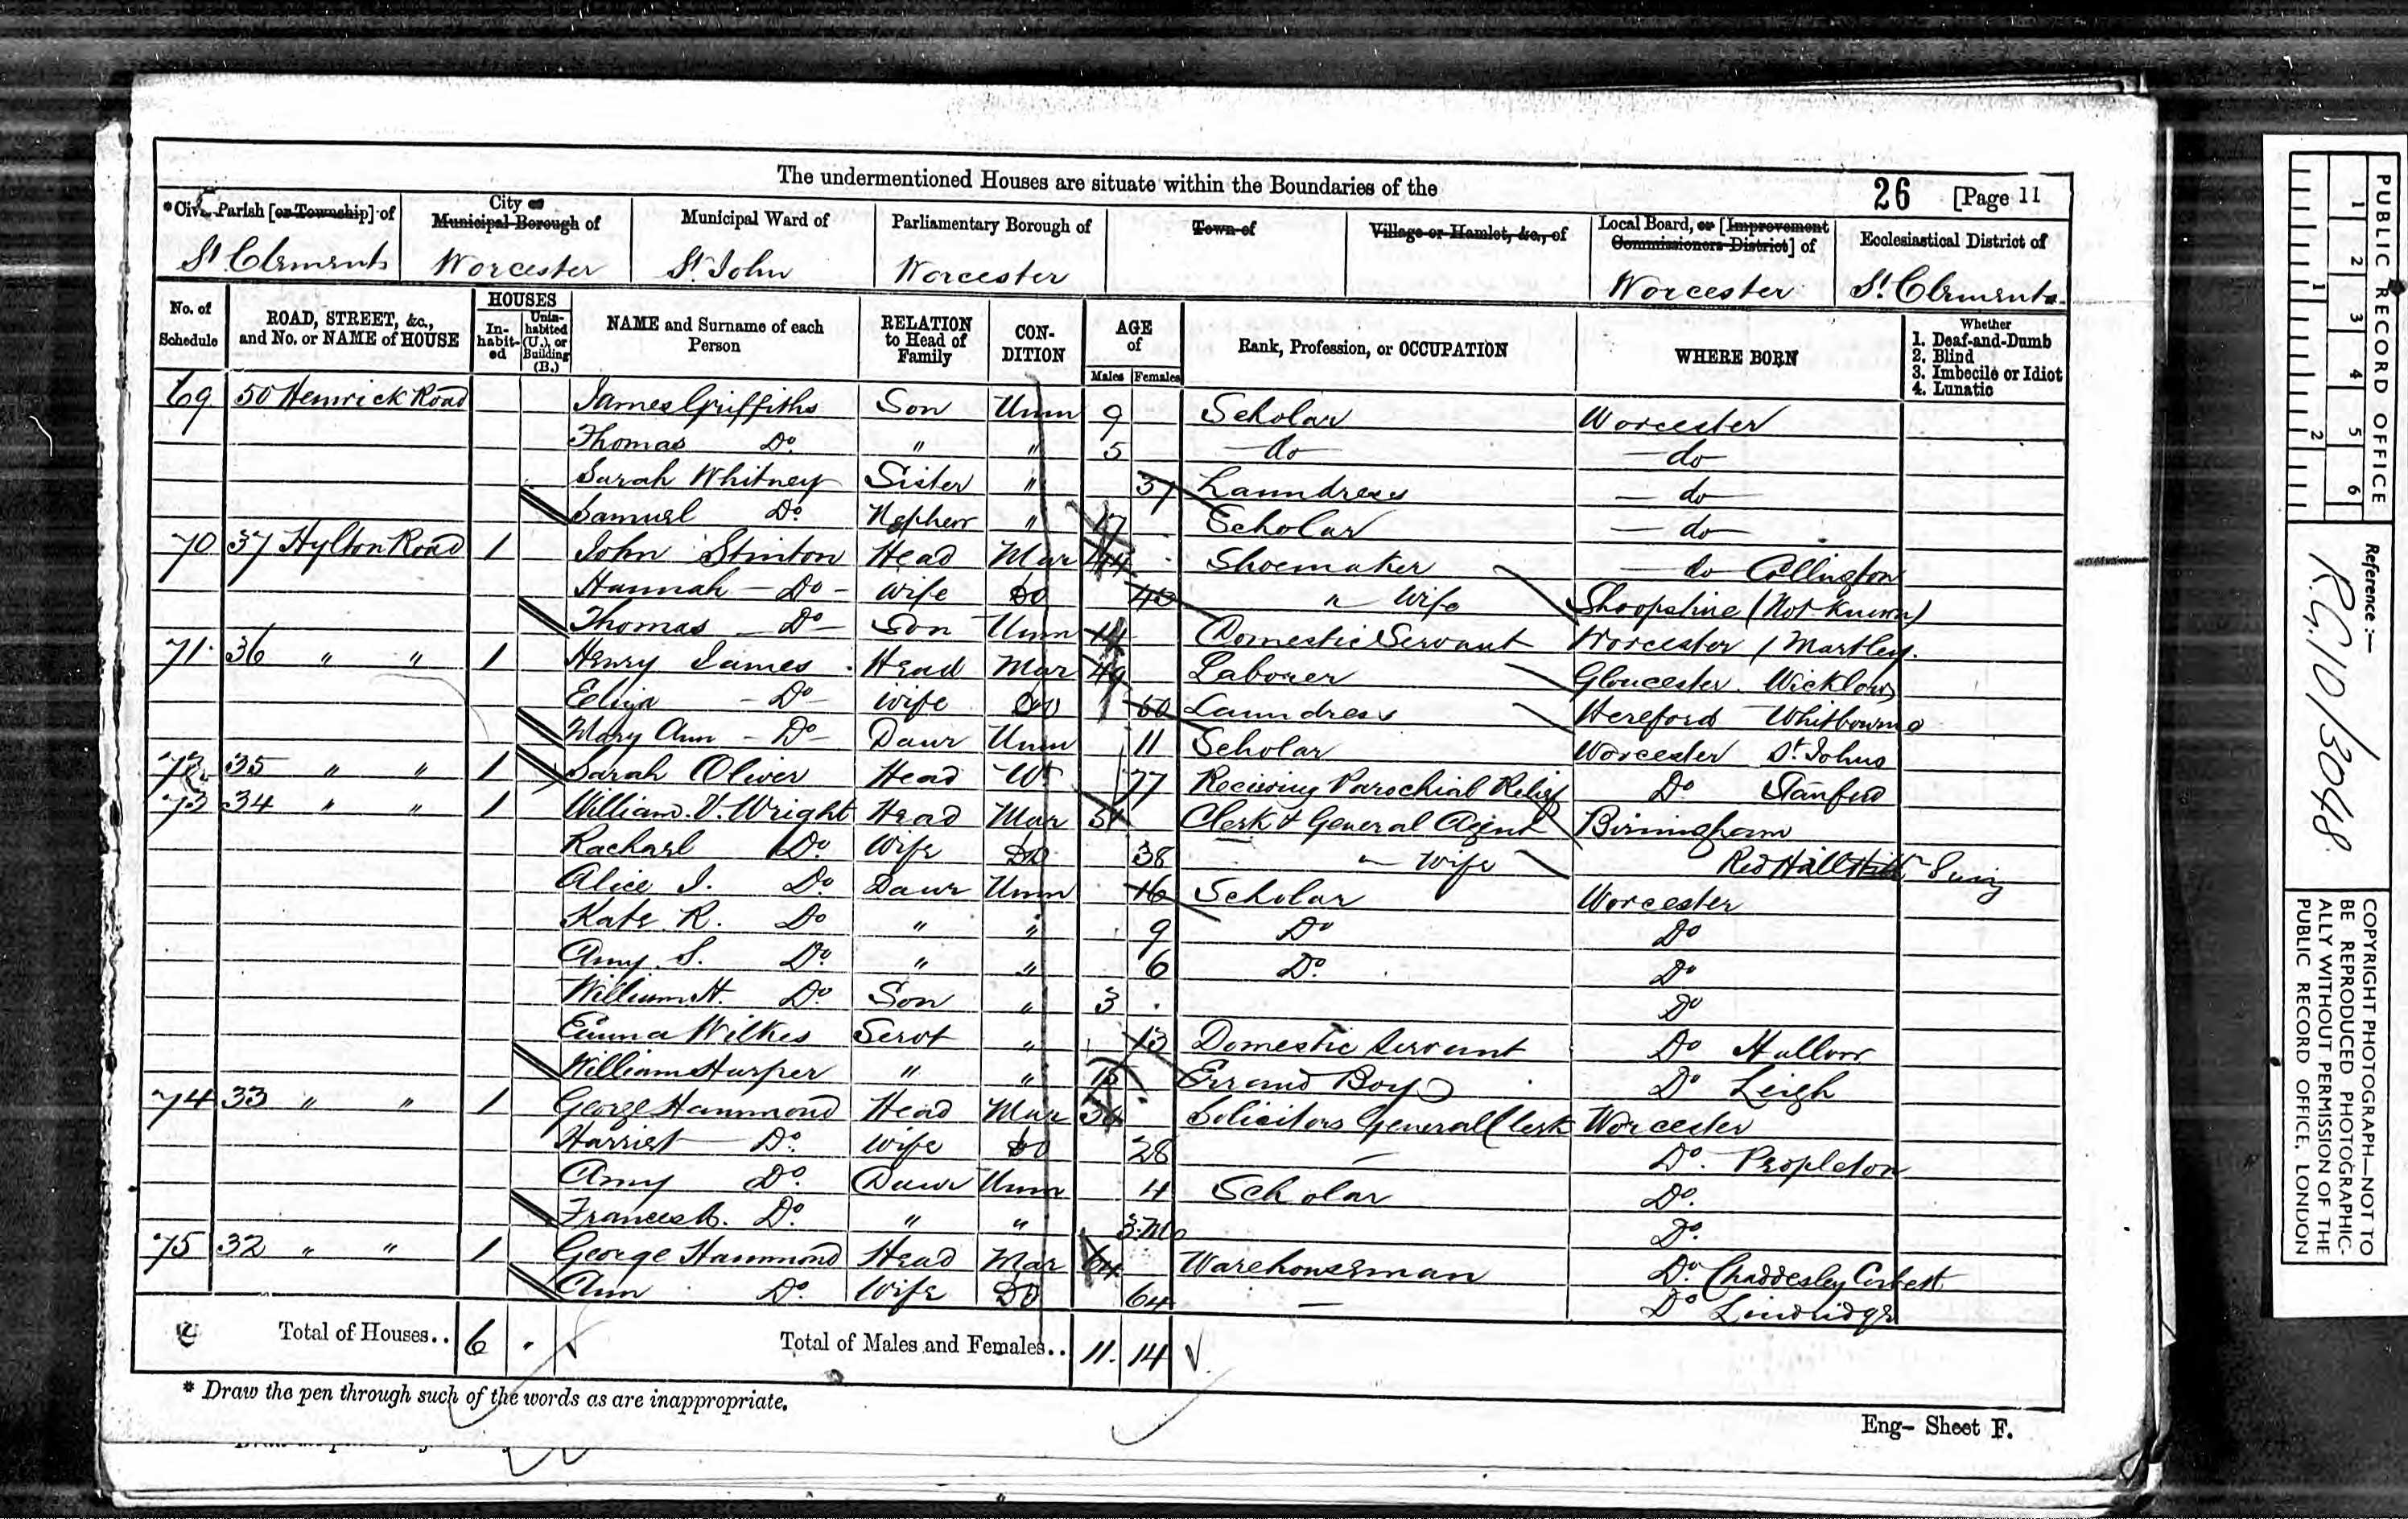 The undermentioned Houses are situate within the Boundaries of the
26 [Page 11
*Civil Parish [or Township] of
City or Municipal Borough of
Municipal Ward of
Parliamentary Borough of
Town of
Village or Hamlet, &c., of
Local Board, or [Improvement Commissioners District] of
Ecclesiastical District of
St Clements Worcester St John Worcester Worcester St Clements
No. of Schedule
ROAD, STREET, &c., and No. or NAME of HOUSE
HOUSES
Inhabited
Uninhabited (U.), or Building (B.)
NAME and Surname of each Person
RELATION to Head of Family
CONDITION
AGE of
Males Females
Rank, Profession, or OCCUPATION
WHERE BORN
Whether
1. Deaf-and-Dumb
2. Blind
3. Imbecile or Idiot
4. Lunatic
69 50 Henwick Road James Griffiths Son Unm 9 Scholar Worcester
Thomas Do " " 5 do do
Sarah Whitney Sister " 37 Laundress do
Samuel Do Nephew " Scholar do
70 37 Hylton Road 1 John Stinton Head Mar 44 Shoemaker do Collington
Hannah Do Wife Do 40 " Wife Shropshire (Not Known)
Thomas Do Son Unm 14 Domestic Servant Worcester / Martley
71 36 " " 1 Henry James Head Mar 49 Laborer Gloucester Wicklow
Eeliza Do Wife Do 60 Laundress Hereford Whitbourne
Mary Ann Do Daur Unm 11 Scholar Worcester St Johns
72 35 " " 1 Sarah Oliver Head W 77 Reciving Parochial Relief Do Stanford
73 34 " " 1 William V. Wright Head Mar 51 Clerk & General Agent Birmingham
Rachael Do Wife Do 38 " Wife Red Hall Hill
Alice J. Do Daur Unm 16 Scholar Worcester
Kate R. Do " " 9 Do Do
Amy S. Do " " 6 Do Do
William H. Do Son " 3 Do
Emma Wilkes Servt " 13 Domestic Servant Do Hallow
William Harper " " 15 Errand Boy Do Leigh
74 33 " " 1 George Hammond Head Mar 34 Solicitors General Clerk Worcester
Harriet Do Wife Do 28 — Do Peopleton
Amy Do Daur Unm 4 Scholar Do
Frances A. Do " " 3 Mo Do
75 32 " " 1 George Hammond Head Mar 64 Warehouseman Do Chaddesley Corbett
Ann Do Wife Do 64 — Do Lindridge
Total of Houses.. 6
Total of Males and Females.. 11 14
* Draw the pen through such of the words as are inappropriate.
Eng- Sheet F.
PUBLIC RECORD OFFICE
1 2 3 4 5 6
1 2
Reference :—
R.G. 10/3048
COPYRIGHT PHOTOGRAPH—NOT TO
BE REPRODUCED PHOTOGRAPHIC-
ALLY WITHOUT PERMISSION OF THE
PUBLIC RECORD OFFICE, LONDON